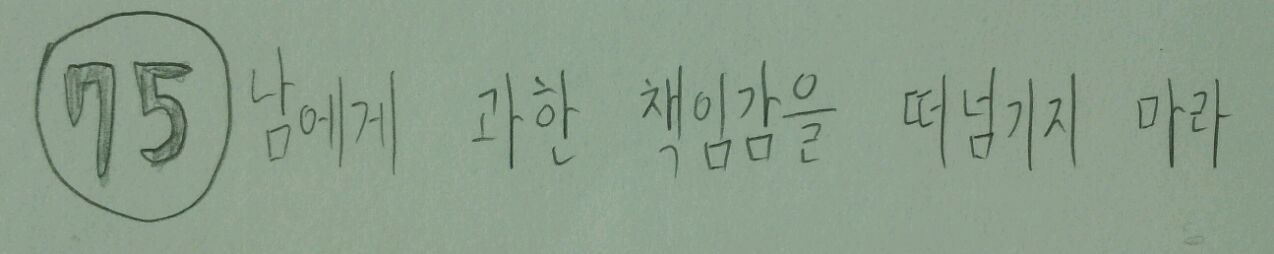 75 남에게 과한 책임감을 떠넘기지 마라